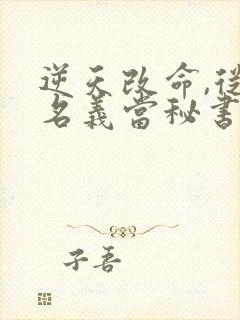 逆天改命,從
名義當秘書
子吾